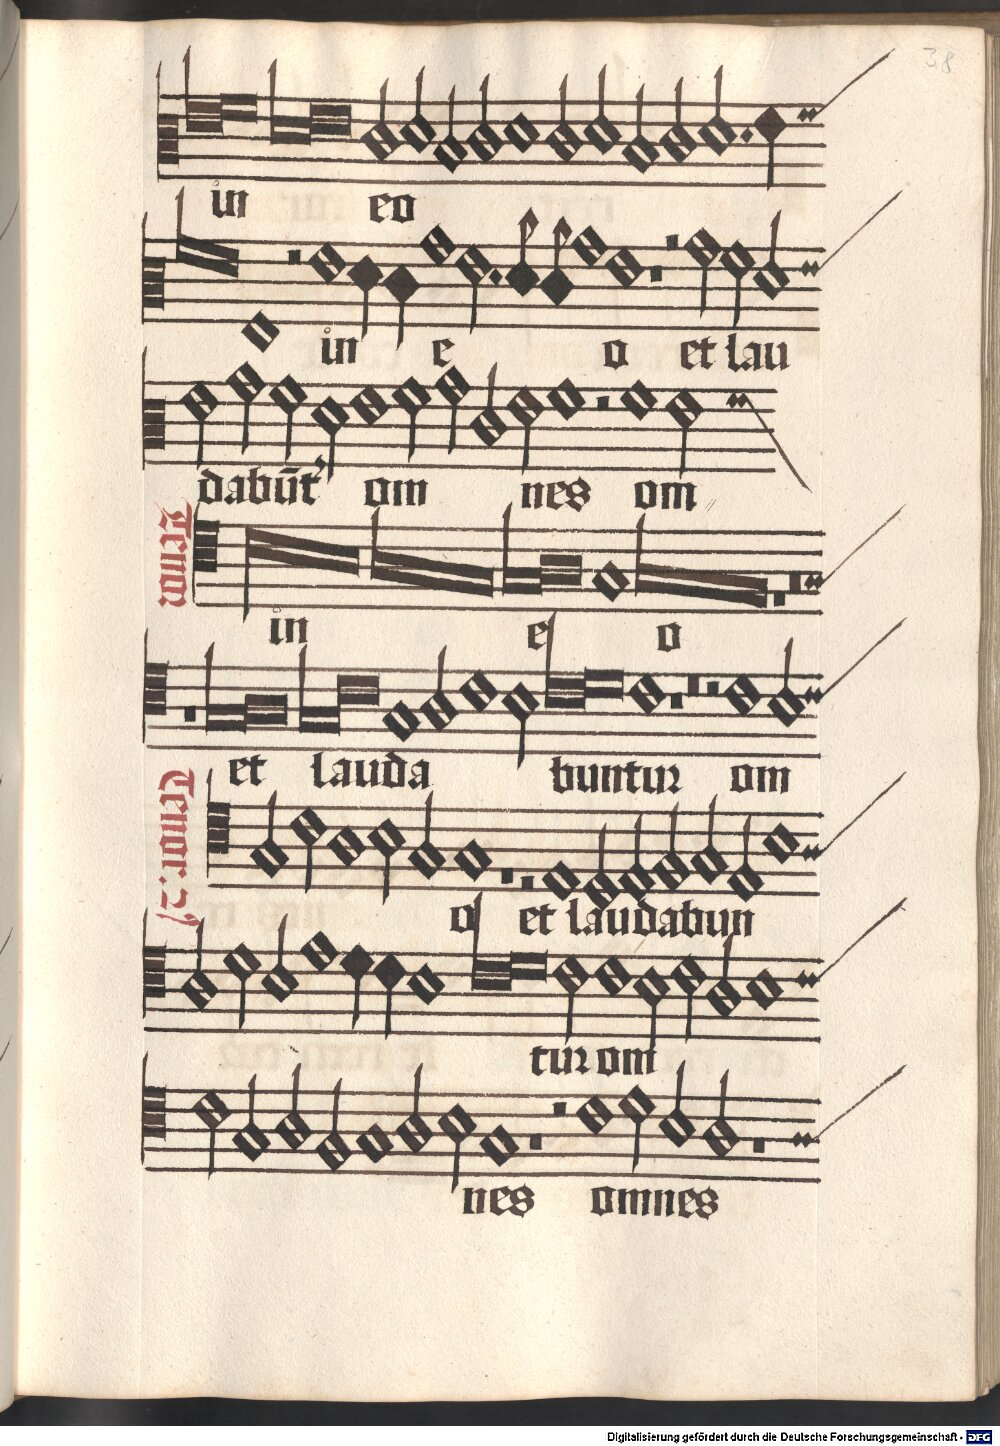 38
in eo
in e o et lau
dabūt᷒ om nes om
Tenor
in e o
et lauda buntur om
Tenor. 2⁹
o et laudabun
tur om
nes omnes
Digitalisierung gefördert durch die Deutsche Forschungsgemeinschaft - DFG